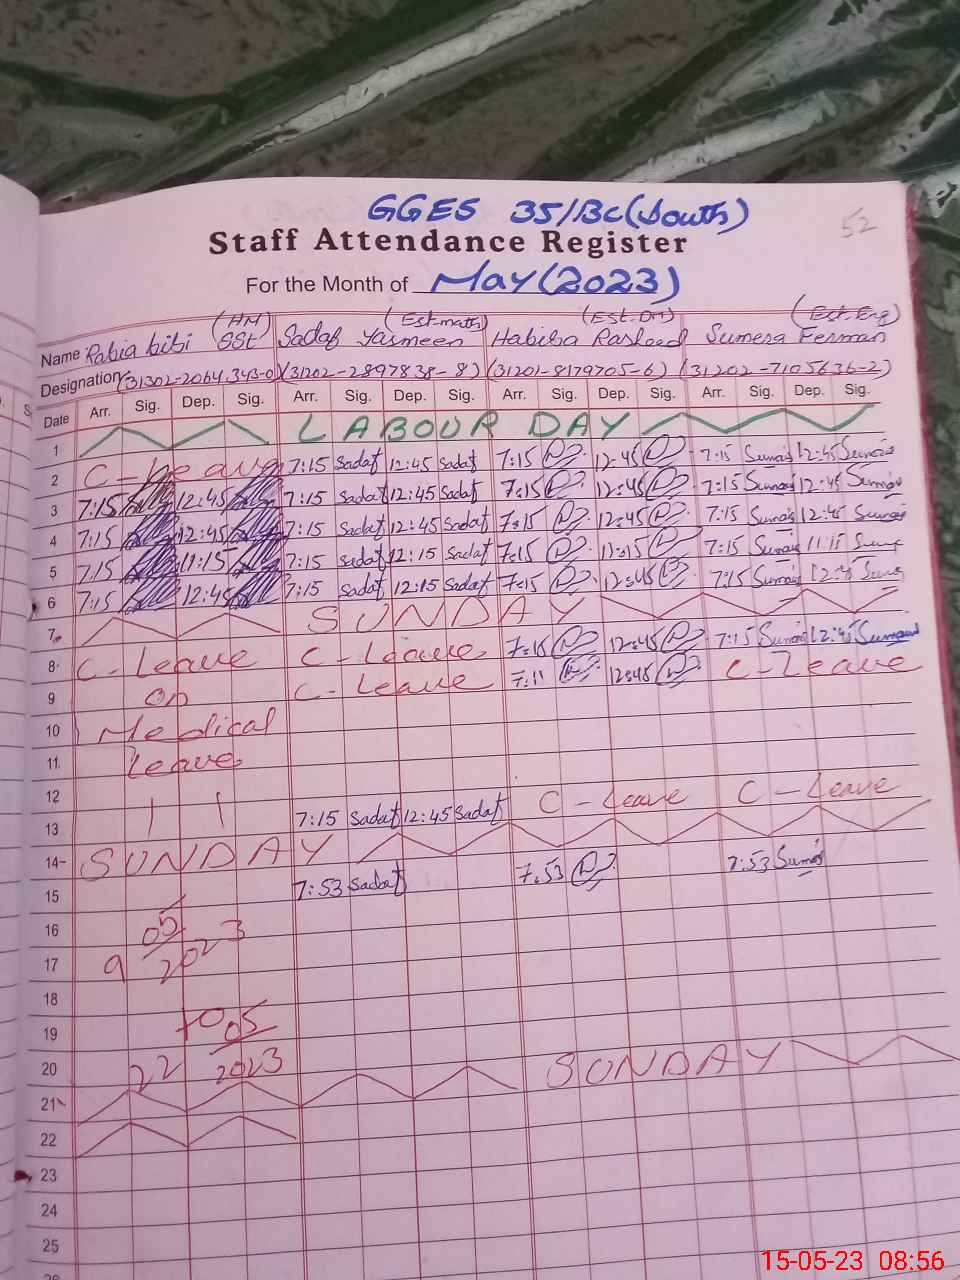 GGES 35/BC(South)
52
Staff Attendance Register
For the Month of May(2023)
(HM) (Est.math) (Est.Eng)
Name Rabia bibi SSt Sadaf Yasmeen Habiba Rasheed Sumera Ferman
Designation (31302-2064343-0) (31202-2897838-8) (31201-8179705-6) (31202-7105636-2)
Date Arr. Sig. Dep. Sig. Arr. Sig. Dep. Sig. Arr. Sig. Dep. Sig. Arr. Sig. Dep. Sig.
1 LABOUR DAY
2 C-Leave 7:15 Sadaf 12:45 Sadaf 7:15 12:45 7:15 12:45
3 7:15 12:45 7:15 Sadaf 12:45 Sadaf 7:15 12:45 7:15 12:45
4 7:15 12:45 7:15 Sadaf 12:45 Sadaf 7:15 12:45 7:15 12:45
5 7:15 11:15 7:15 Sadaf 12:15 Sadaf 7:15 11:15 7:15 11:15
6 7:15 12:45 7:15 Sadaf 12:15 Sadaf 7:15 12:45 7:15
7 SUNDAY
8 C-Leave C-Leave 7:15 12:45 7:15 12:45
9 on C-Leave 7:11 12:45 C-Leave
10 Medical
11 Leave
12
13 7:15 Sadaf 12:45 Sadaf C-Leave C-Leave
14 SUNDAY
15 7:53 Sadaf 7:53 7:53
16 05
17 9 2023
18
19 to 05
20 22 2023 SUNDAY
21
22
23
24
25
15-05-23 08:56